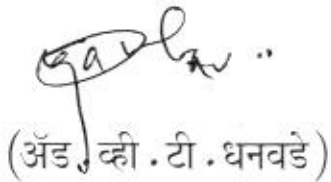 (ॲड. व्ही.टी.धनवडे)